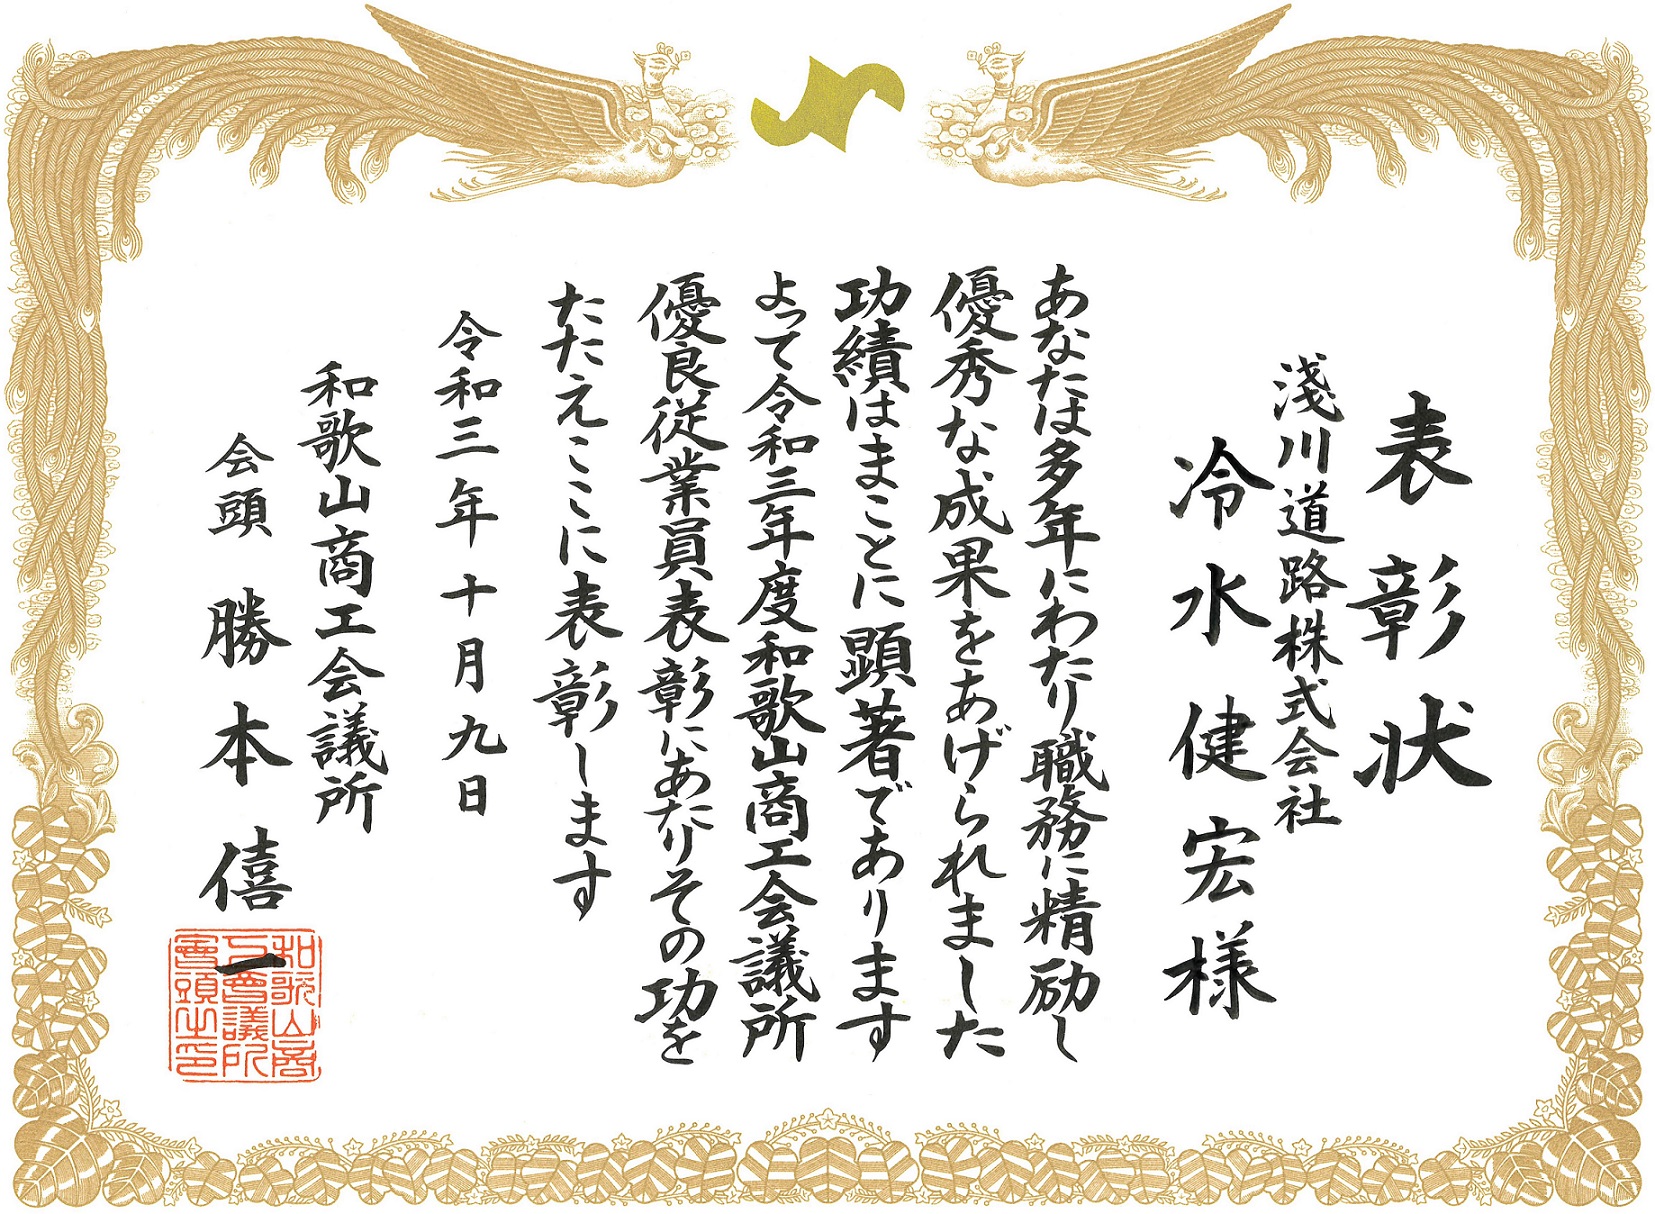 表彰状
淺川道路株式会社
冷水健宏様
あなたは多年にわたり職務に精励し
優秀な成果をあげられました
功績はまことに顕著であります
よって令和三年度和歌山商工会議所
優良従業員表彰にあたりその功を
たたえここに表彰します
令和三年十月九日
和歌山商工会議所
会頭 勝本僖一
和歌山商
工会議所
會頭之印